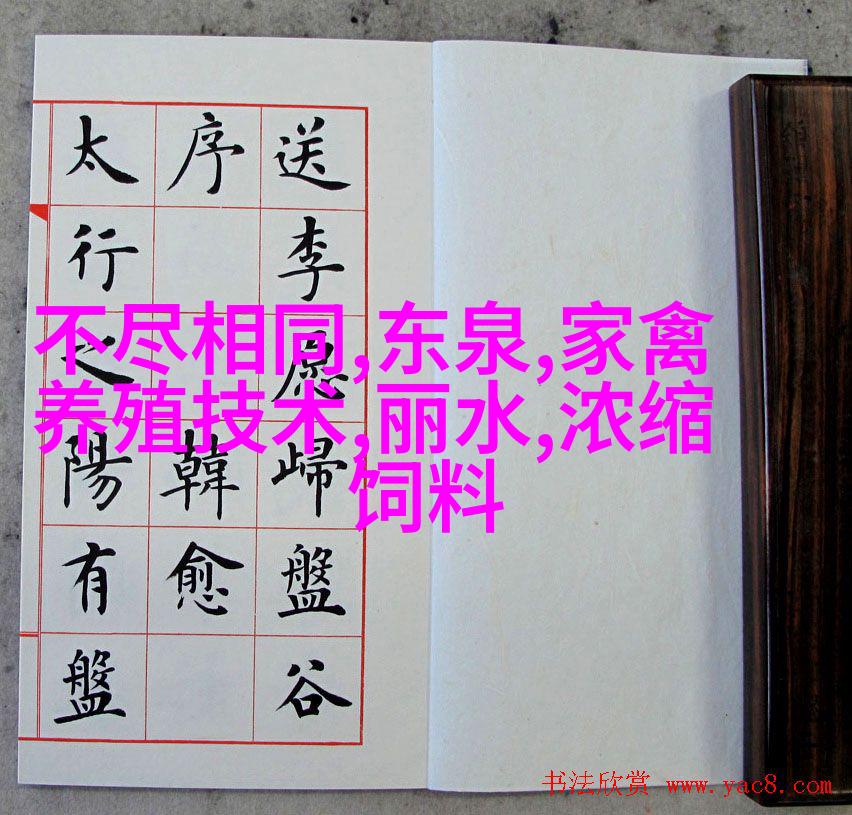 送李愿歸盤谷
序 韓愈
太行之陽有盤
不尽相同,东泉,家禽
养殖技术,丽水,浓缩
饲料
书法欣赏 www.yac8.com